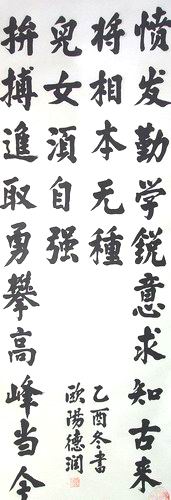 愤发勤学鋭意求知古来
将相本无種
拚搏進取勇攀高峰当今
兒女湏自强
乙酉冬書
歐陽德润